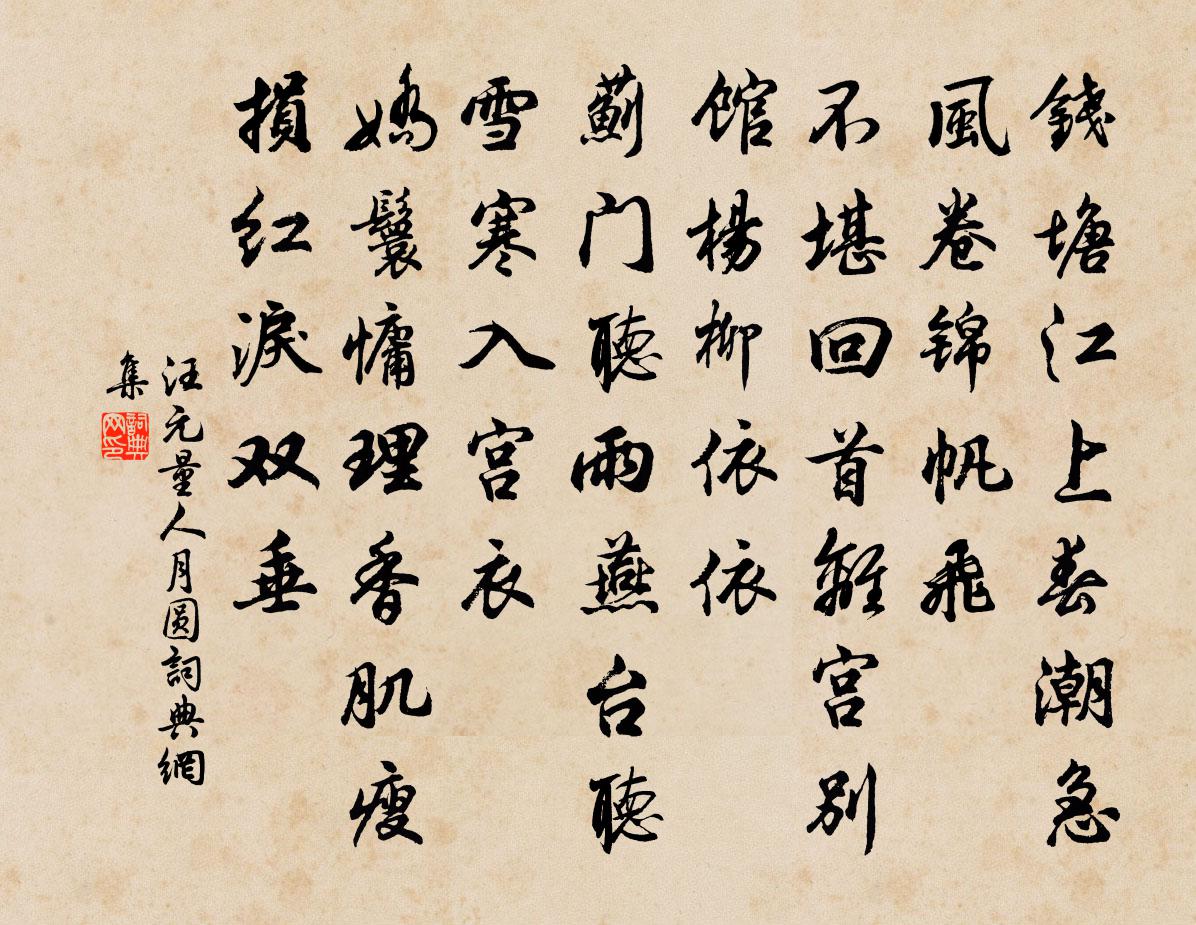 錢塘江上春潮急
風卷锦帆飛
不堪回首離宫别
馆楊柳依依
薊门聽雨燕台聽
雪寒入宫衣
嬌鬟慵理香肌瘦
損红淚双垂
汪元量人月圆詞典網
集
詞典
网印